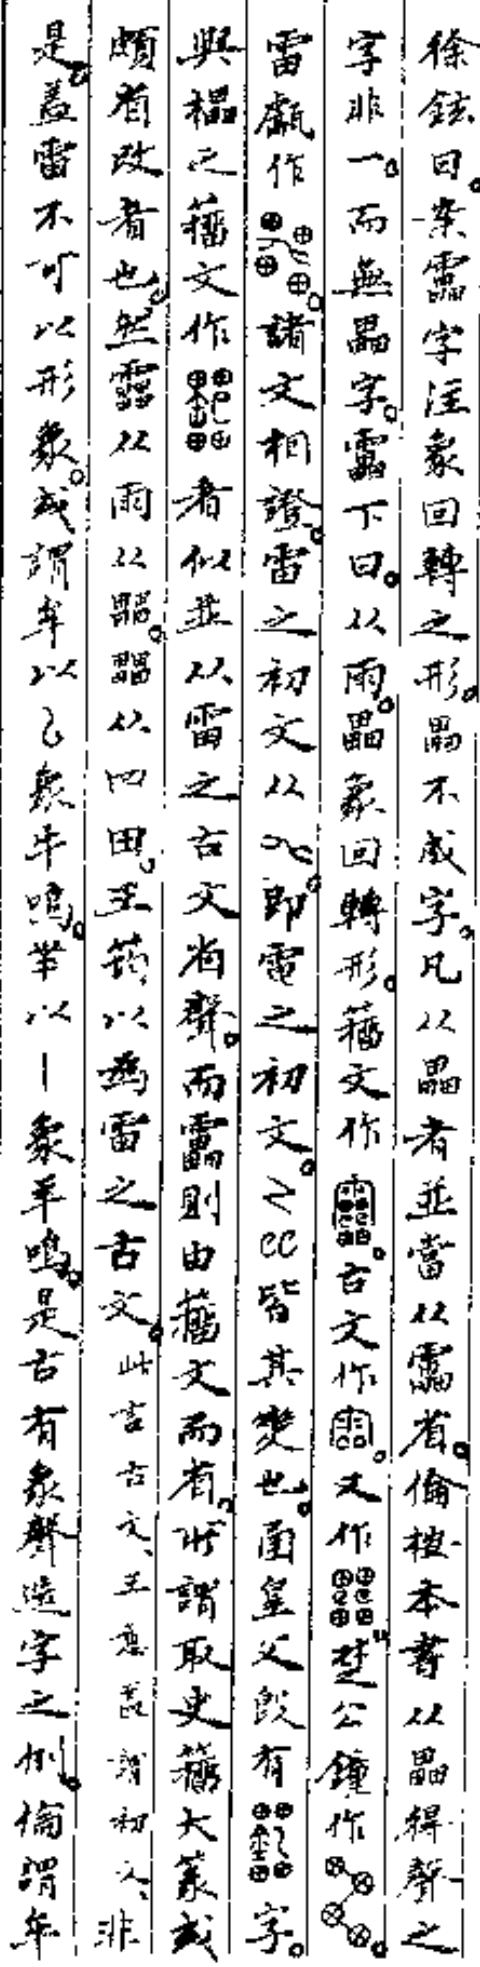 徐鉉曰。案靁字注象回轉之形。畾不成字。凡从畾者並當从靁省。倫檢本書从畾得聲之
字非一。而無畾字。靁下曰。从雨。畾象回轉形。籀文作。古文作。又作楚公鐘作。
雷甗作。諸文相證。雷之初文从。即電之初文。皆其變也。函皇父𣪘有字。
與櫑之籀文作者似並从雷之古文省聲。而靁則由籀文而省。所謂取史籀大篆或
頗省改者也。然从雨从。从四田。王筠以為雷之古文。此言古文、王意蓋謂初文、非
是。蓋雷不可以形象。或謂牟以厶象牛鳴。羋以丨象羊鳴。是古有象聲造字之例。倫謂牟